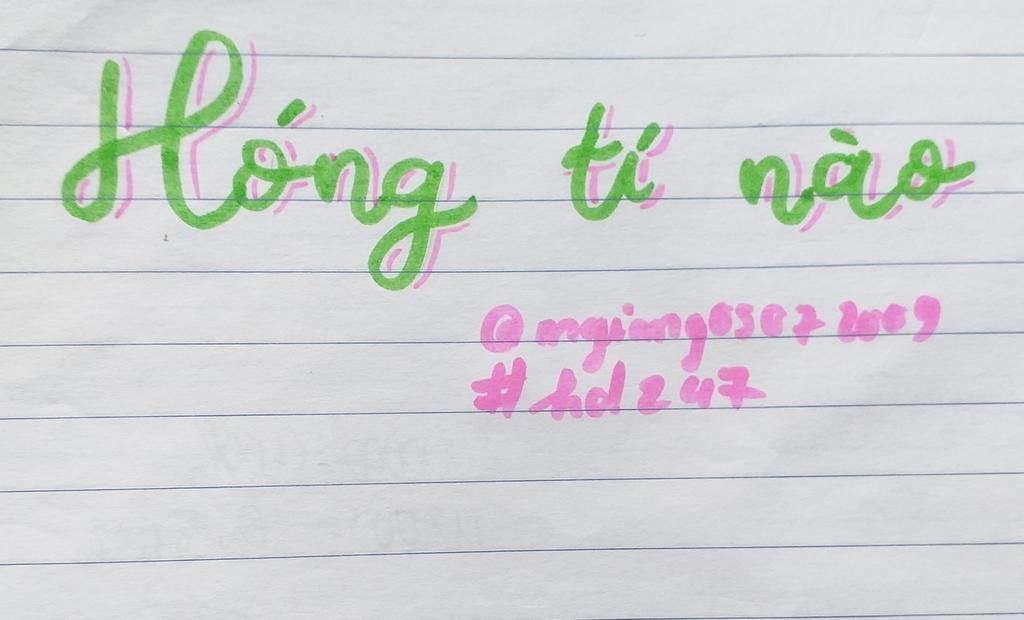 Hóng tí nào
@mgiang05072009
#hd247